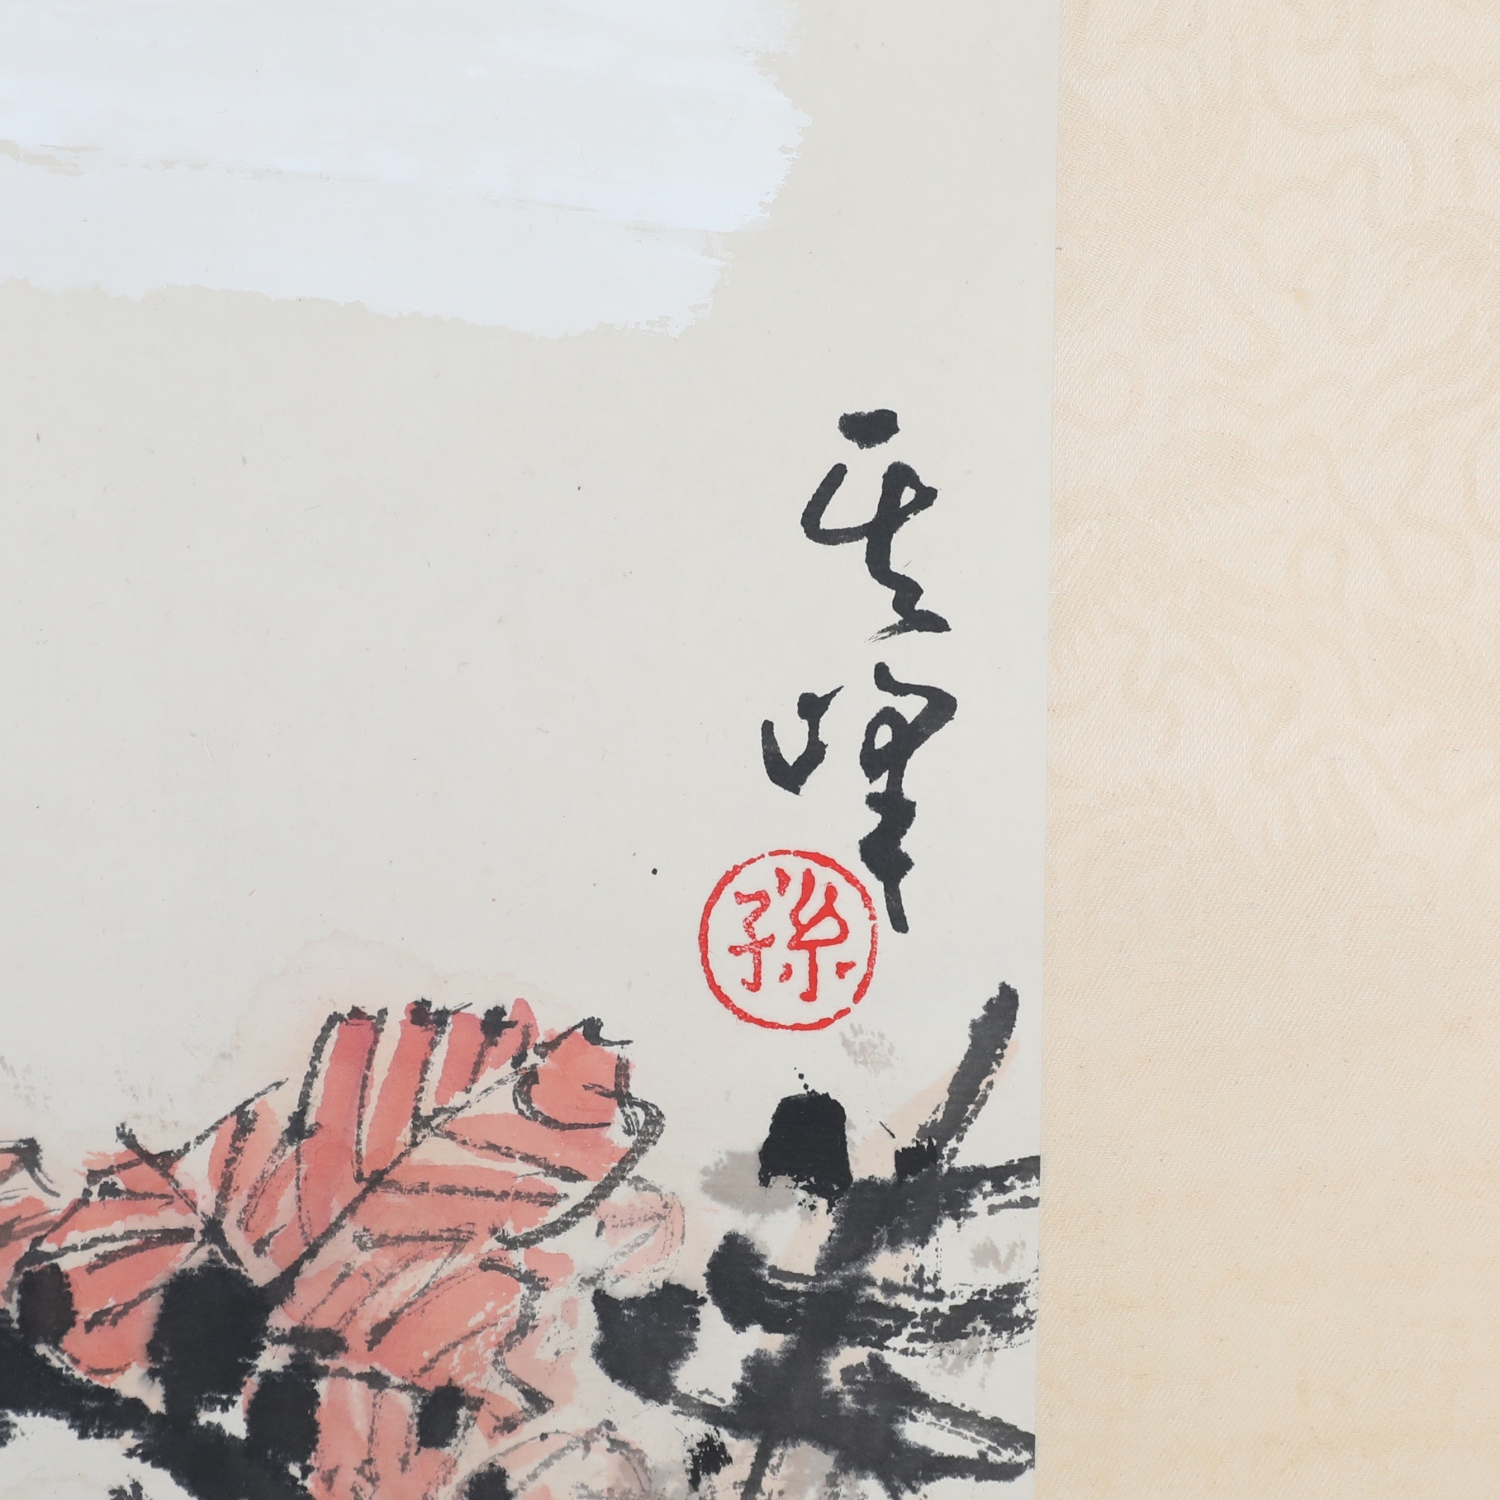 其峰
孫